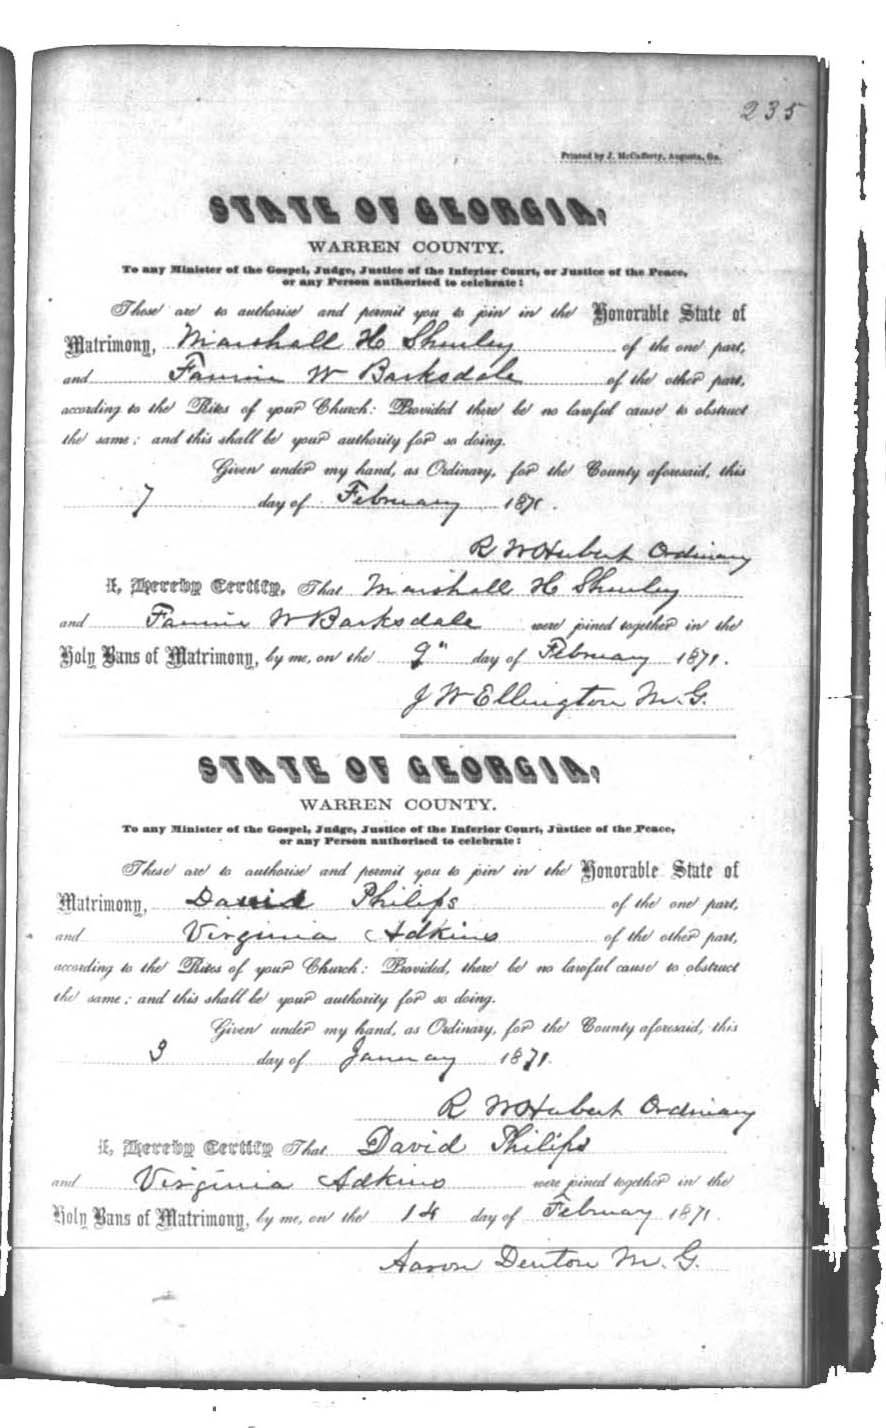 235
Printed by J. McCafferty, Augusta, Ga.
STATE OF GEORGIA,
WARREN COUNTY.
To any Minister of the Gospel, Judge, Justice of the Inferior Court, or Justice of the Peace,
or any Person authorised to celebrate:
These are to authorise and permit you to join in the Honorable State of
Matrimony, Marshall H Shurley of the one part,
and Fannie W Barksdale of the other part,
according to the Rites of your Church: Provided there be no lawful cause to obstruct
the same; and this shall be your authority for so doing.
Given under my hand, as Ordinary, for the County aforesaid, this
7 day of February 1871.
R W Hubert Ordinary
I, Hereby Certify, That Marshall H Shurley
and Fannie W Barksdale were joined together in the
Holy Bans of Matrimony, by me, on the 9" day of February 1871.
J W Ellington M. G.
STATE OF GEORGIA,
WARREN COUNTY.
To any Minister of the Gospel, Judge, Justice of the Inferior Court, Justice of the Peace,
or any Person authorised to celebrate:
These are to authorise and permit you to join in the Honorable State of
Matrimony, David Philips of the one part,
and Virginia Adkins of the other part,
according to the Rites of your Church: Provided, there be no lawful cause to obstruct
the same; and this shall be your authority for so doing.
Given under my hand, as Ordinary, for the County aforesaid, this
3 day of January 1871.
R W Hubert Ordinary
I, Hereby Certify That David Philips
and Virginia Adkins were joined together in the
Holy Bans of Matrimony, by me, on the 14 day of February 1871.
Aaron Denton M. G.